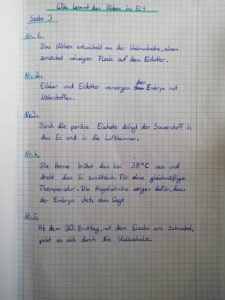 Wie kommt das Küken ins Ei?
Seite 3
Nr. 1.
Das Küken entwickelt an der Keimscheibe, einen
zunächst winzigen Fleck auf dem Eidotter.
Nr. 2.
Eiklar und Eidotter versorgen den Embryo mit
Nährstoffen.
Nr. 3.
Durch die poröse Eischale dringt der Sauerstoff in
das Ei und in die Luftkammer.
Nr. 4.
Die Henne brütet das bei 38°C aus und
dreht das Ei zusätzlich. Für eine gleichmäßige
Themperatur. Die Hagelschnüre sorgen dafür, dass
der Embryo stets oben liegt.
Nr. 5.
Ab dem 20. Bruttag, mit dem Eizahn am Schnabel,
pickt es sich durch die